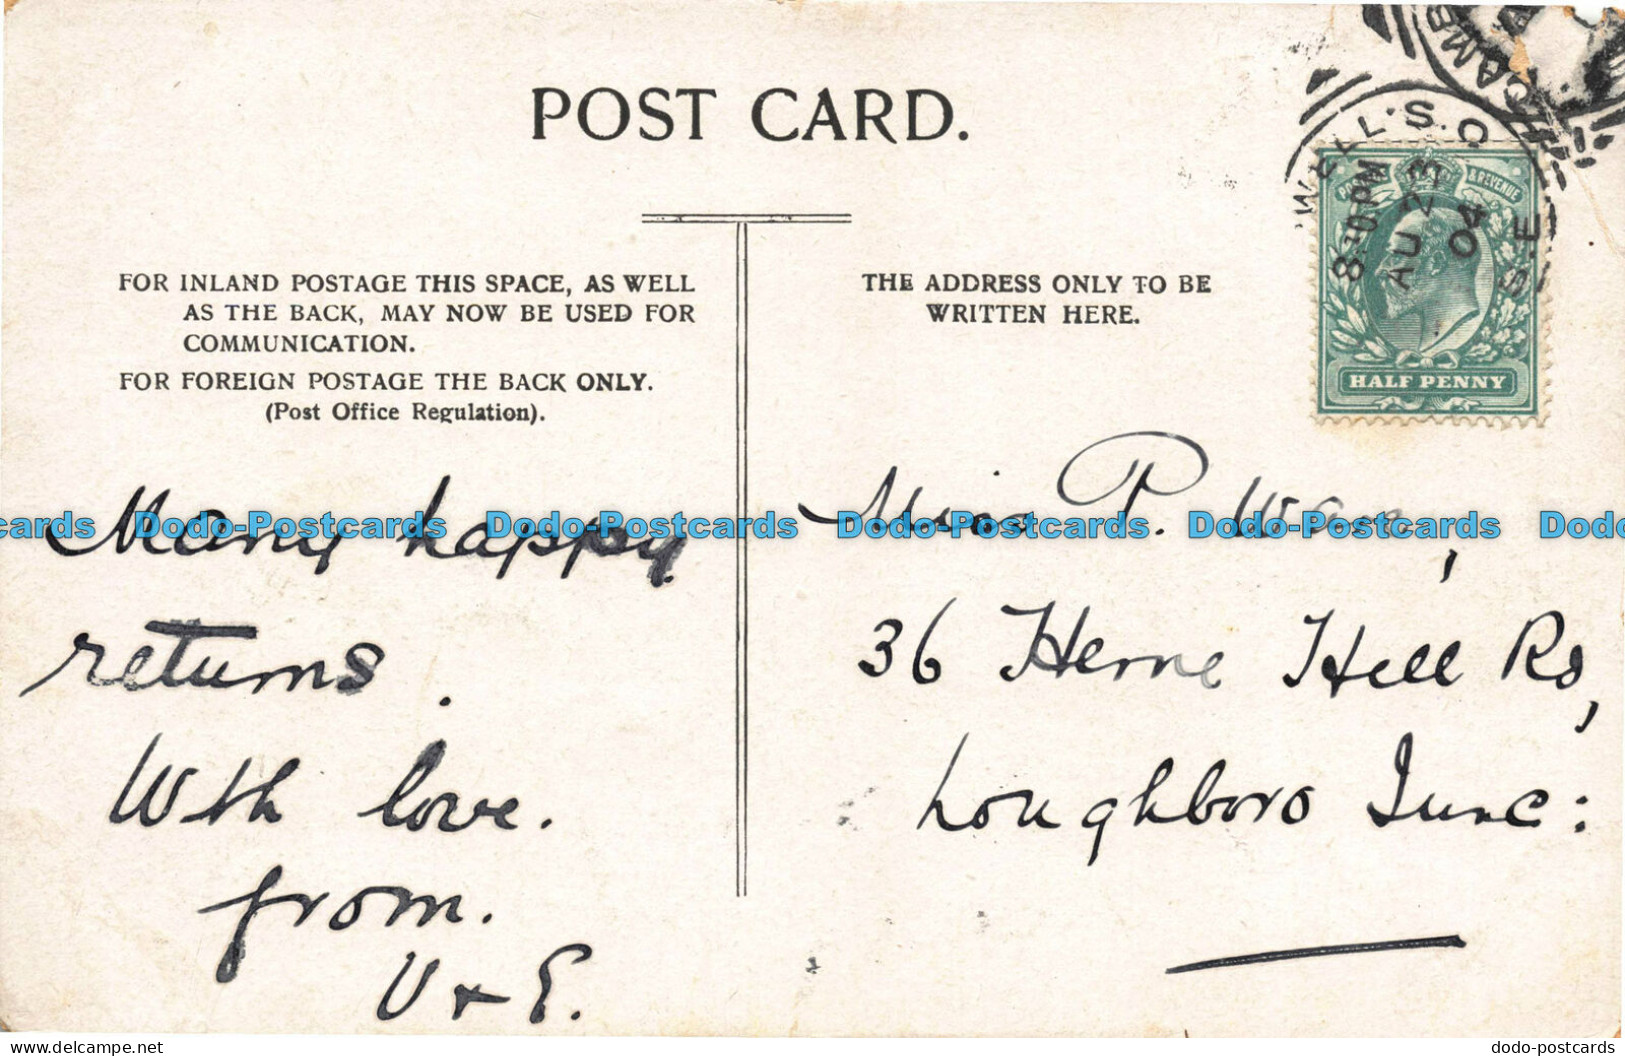 POST CARD.
FOR INLAND POSTAGE THIS SPACE, AS WELL
AS THE BACK, MAY NOW BE USED FOR
COMMUNICATION.
FOR FOREIGN POSTAGE THE BACK ONLY.
(Post Office Regulation).
THE ADDRESS ONLY TO BE
WRITTEN HERE.
WELL.S.O
8.30PM
AU 23
04
S.E
CAMB
POSTAGE & REVENUE
HALF PENNY
Many happy
returns.
With love.
from.
V & E.
Miss P.
36 Herne Hill Rd,
Loughboro Junc:
cards Dodo-Postcards Dodo-Postcards Dodo-Postcards Dodo-Postcards Dodo
dodo-postcards
www.delcampe.net